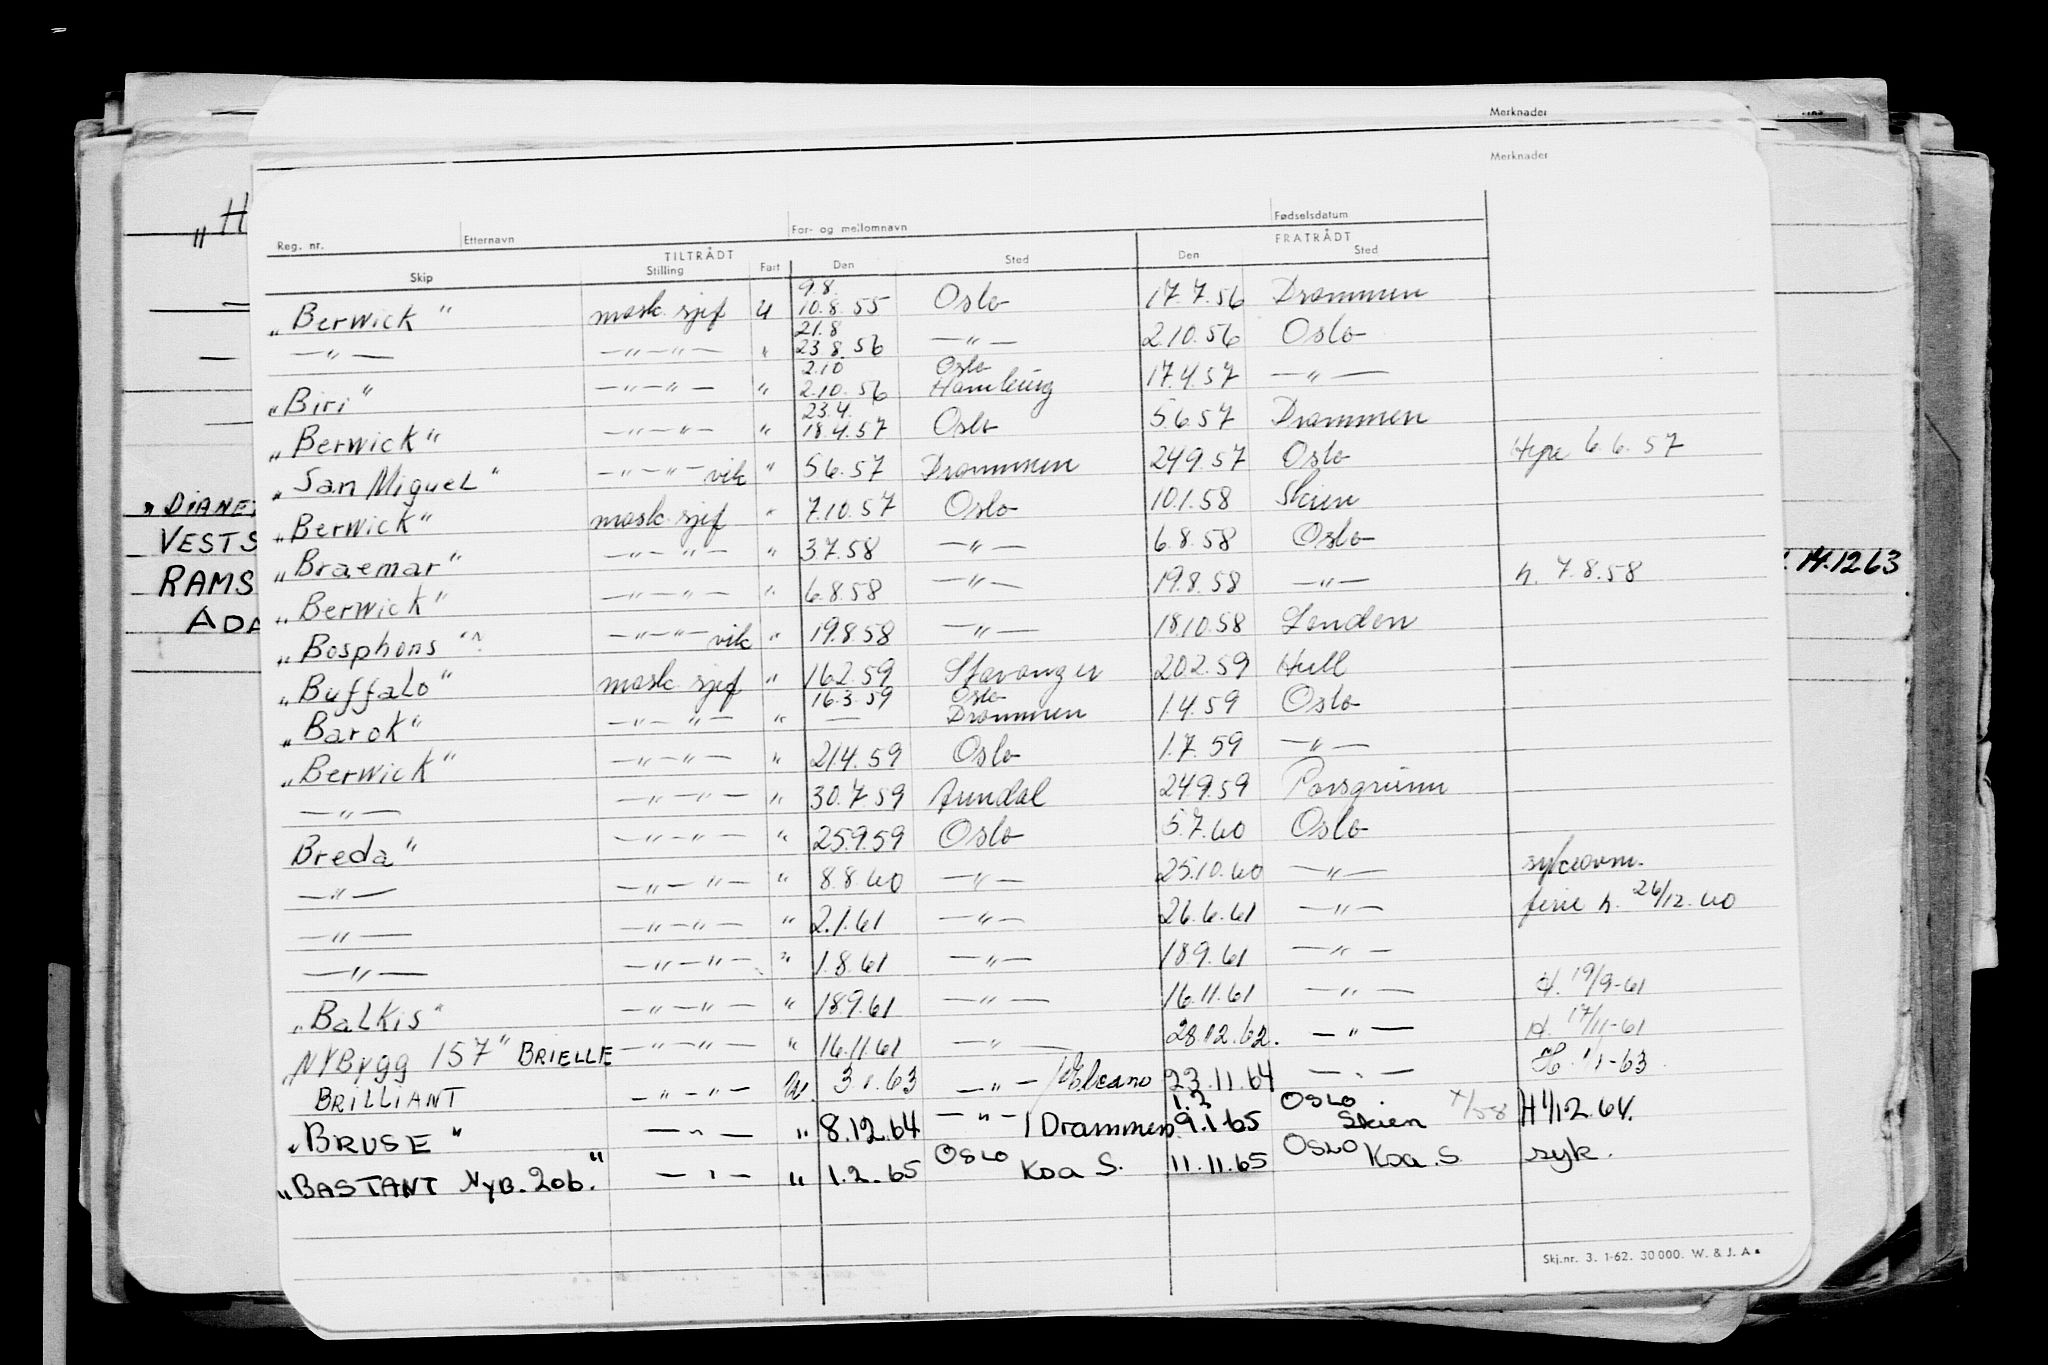 Merknader
Merknader
Reg. nr. Etternavn For- og mellomnavn Fødselsdatum
TILTRÅDT FRATRÅDT
Skip Stilling Fart Den Sted Den Sted
9.8.
„Berwick" mask. sjef U 10.8.55 Oslo 17.7.56 Drammen
21.8
—"— —"—"— " 23.8.56 —"— 2.10.56 Oslo
2.10 Oslo
„Biri" —"—"— " 2.10.56 Hamburg 17.4.57 —"—
23.4.
„Berwick" —"—"— " 18.4.57 Oslo 5.6.57 Drammen
„San Miguel" —"—"— vik " 5.6.57 Drammen 24.9.57 Oslo Hyre 6.6.57
„Berwick" mask. sjef " 7.10.57 Oslo 10.1.58 Skien
„Braemar" —"—"— " 3.7.58 —"— 6.8.58 Oslo
„Berwick" —"—"— " 6.8.58 —"— 19.8.58 —"— h. 7.8.58
„Bosphons"? —"—"— vik " 19.8.58 —"— 18.10.58 London
„Buffalo" mask. sjef " 16.2.59 Stavanger 20.2.59 Hull
16.3.59 Oslo
„Barok" —"—"— " — Drammen 1.4.59 Oslo
„Berwick" —"—"— " 21.4.59 Oslo 1.7.59 —"—
—"— —"—"— " 30.7.59 Arendal 24.9.59 Porsgrunn
Breda" —"—"— " 25.9.59 Oslo 5.7.60 Oslo
—"— —"—"— " 8.8.60 —"— 25.10.60 —"— sykeavm.
—"— —"—"— " 2.1.61 —"— 26.6.61 —"— ferie h. 26/12.60
—"— —"—"— " 1.8.61 —"— 18.9.61 —"—
„Balkis" —"—"— " 18.9.61 —"— 16.11.61 —"— H. 19/9-61
„NYBygg 157" BRIELLE —"—"— " 16.11.61 —"— 28.12.62. —"— H. 17/11-61
BRILLIANT —"—"— U. 3.1.63 —"— / Elcano 23.11.64 —"— H. 1/1-63
1.2 OSLO
„BRUSE" —"— " 8.12.64 —"— / Drammen 9.1.65 Skien H 1/12.64.
„BASTANT NYB. 206." —"— " 1.2.65 OSLO Koa S. 11.11.65 OSLO Koa. S syk.
„H
„DIANE
VESTS
RAMS
ADA
14.12.63
Skj.nr. 3. 1-62. 30 000. W. & J. A.